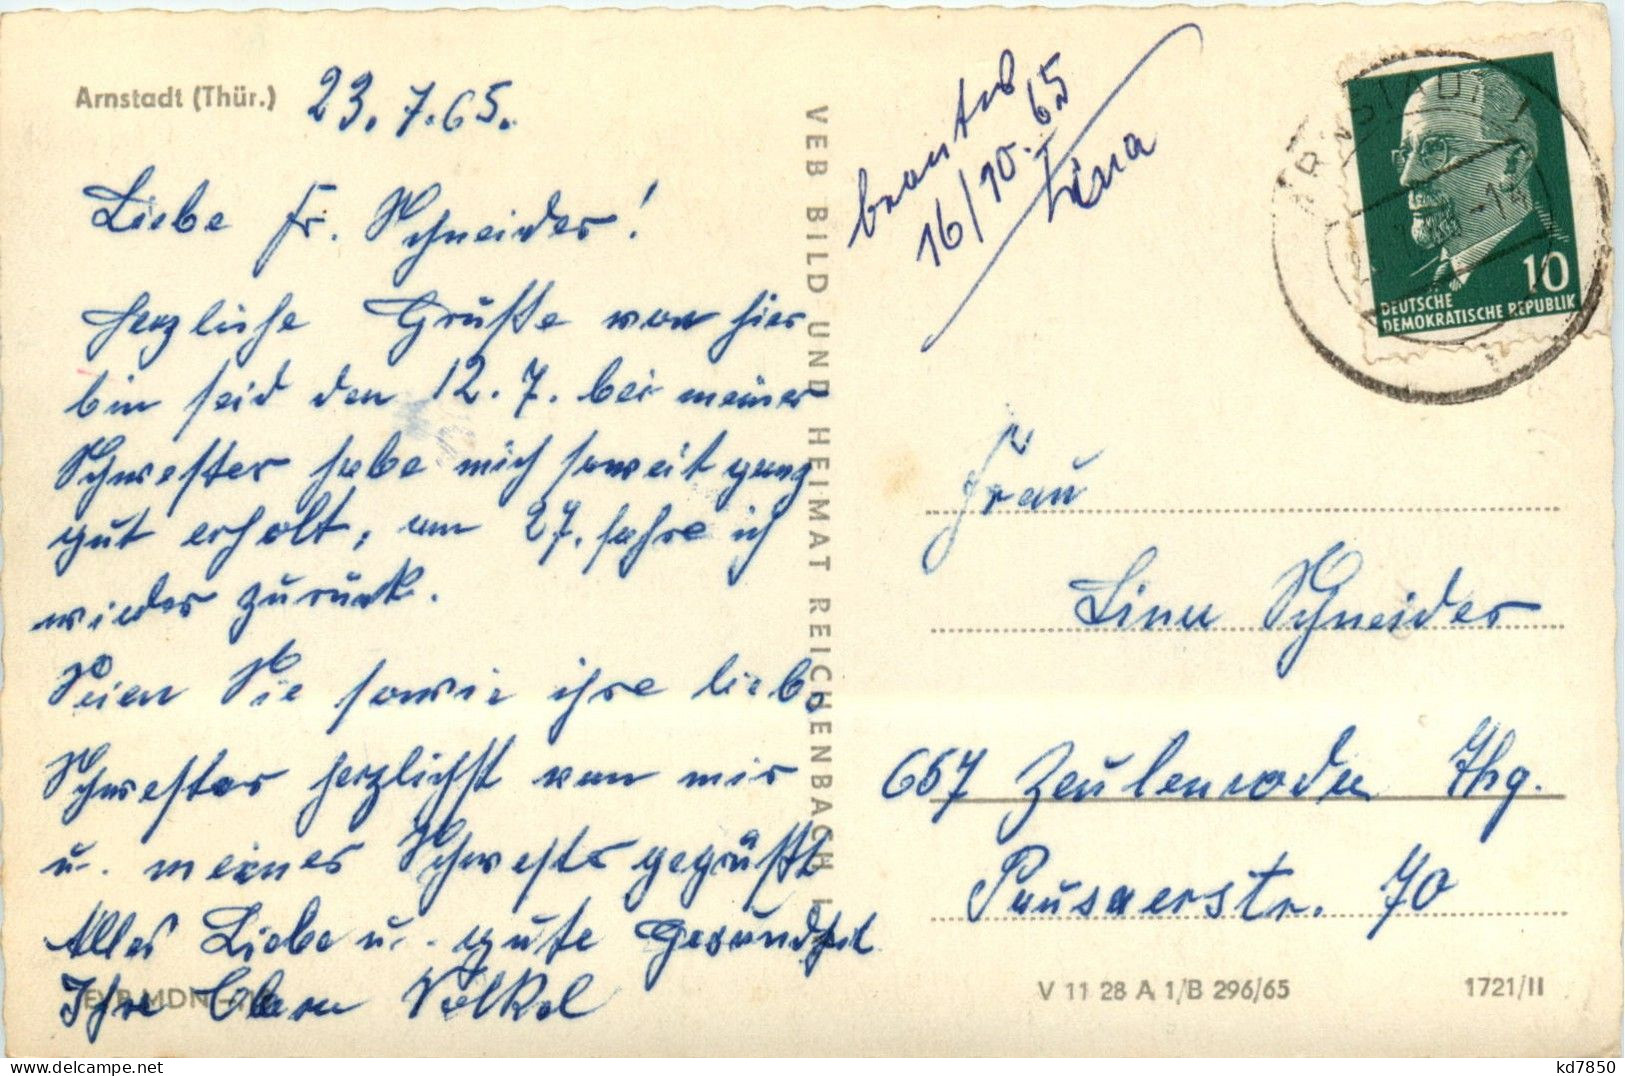 Arnstadt (Thür.) 23.7.65.
Liebe Fr. Schneider!
Herzliche Grüße von hier
bin seid den 12.7. bei meiner
Schwester habe mich soweit ganz
gut erholt, am 27. fahre ich
wieder zurück.
Seien Sie sowie ihre liebe
Schwester herzlichst von mir
u. meiner Schwester gegrüßt
Alles Liebe u. gute Gesundheit
Ihre Völkel
EVP MDN
VEB BILD UND HEIMAT REICHENBACH I. V.
beantwo
16/10.65
Lina
ARNSTADT 1
10
DEUTSCHE
DEMOKRATISCHE REPUBLIK
Frau
Lina Schneider
657 Zeulenroda Thg.
Pausaerstr. 70
V 11 28 A 1/B 296/65 1721/II
kd7850